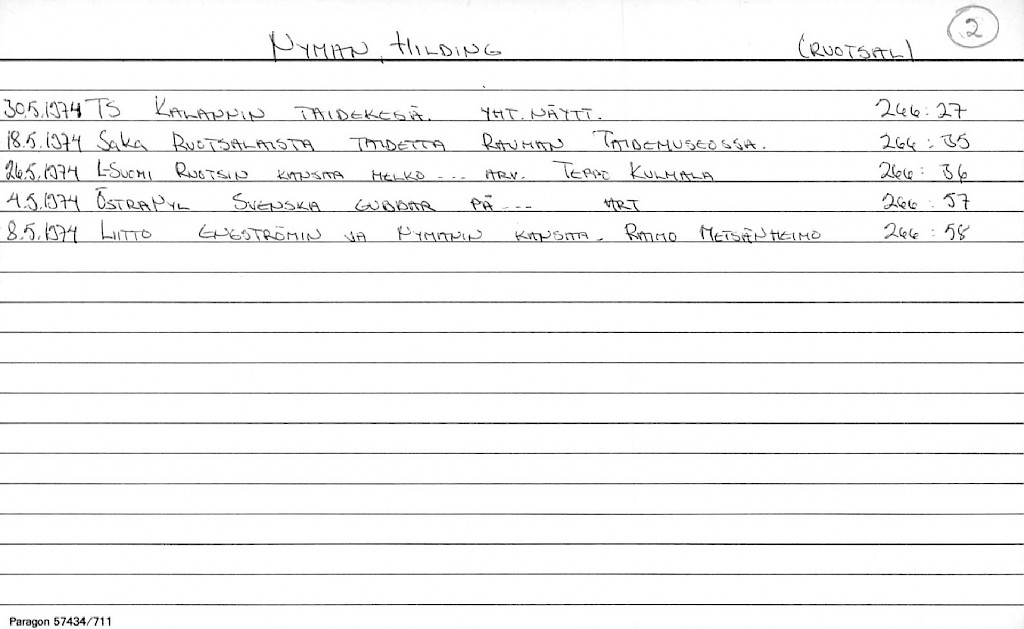 2
NYMAN, HILDING (RUOTSAL)
30.5.1974 TS KALANNIN TAIDEKESÄ. YHT. NÄYTT. 266:27
18.5.1974 SaKa RUOTSALAISTA TAIDETTA RAUMAN TAIDEMUSEOSSA. 266:35
26.5.1974 L-SUOMI RUOTSIN KANSAA MELKO --- ARV. TEPPO KULMALA 266:36
4.5.1974 ÖSTRANYL SVENSKA GUBBAR PÅ --- ART 266:57
8.5.1974 LIITTO ENGSTRÖMIN JA NYMANIN KANSAA. RAIMO METSÄNHEIMO 266:58
Paragon 57434/711